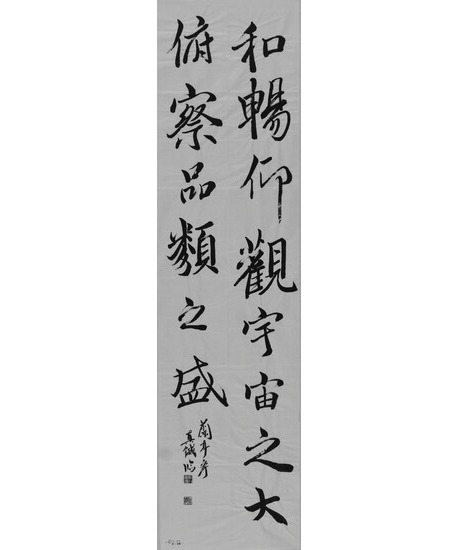 和暢仰觀宇宙之大
俯察品類之盛
蘭亭序
真誠臨